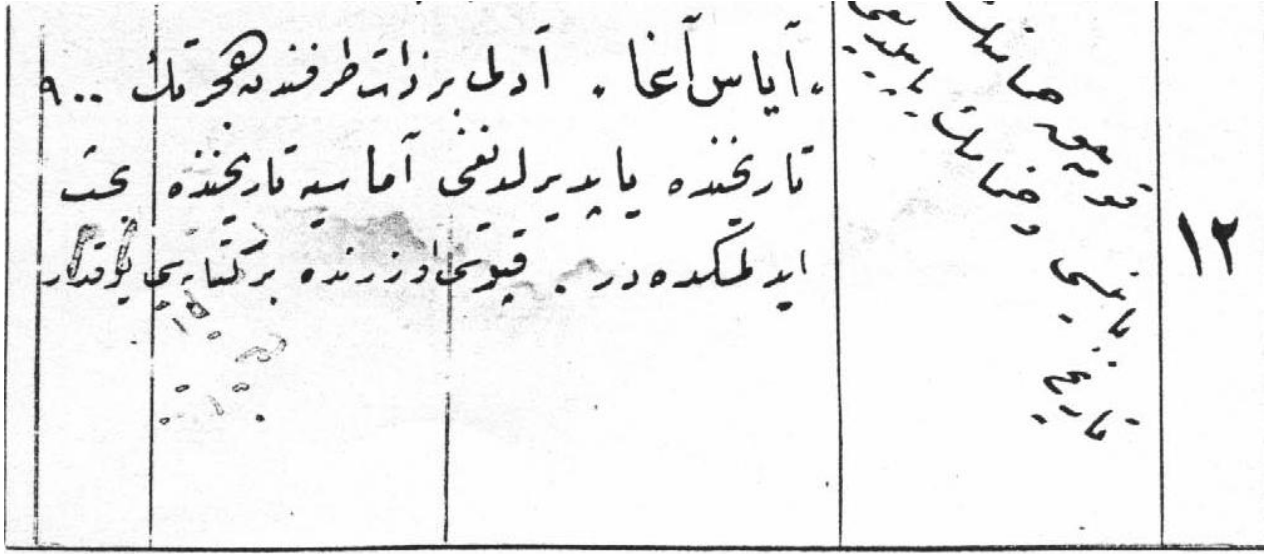 ١٢
قوجه حمامك
بانیسی و حمامك یاپیلدیغی
تاریخ
«آیاس آغا» آدلی بر ذات طرفندن هجرتك ٩٠٠
تاریخنده یاپدیرلدیغی آماسیه تاریخنده بحث
ایدلمكده در. قپوسی اوزرنده بر كتابه‌سی یوقدر